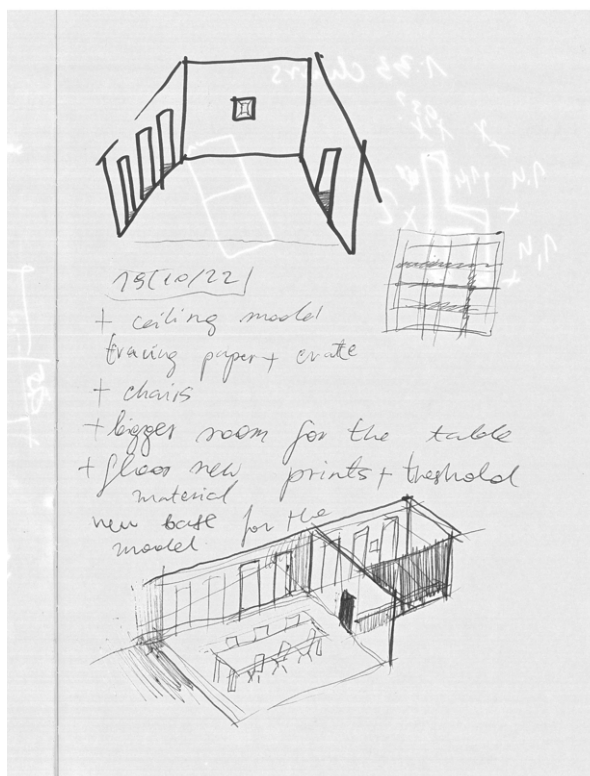 19/10/22
+ ceiling model
tracing paper + crate
+ chairs
+ bigger room for the table
+ floor new prints + threshold
material
new base for the
model
1:33 chairs